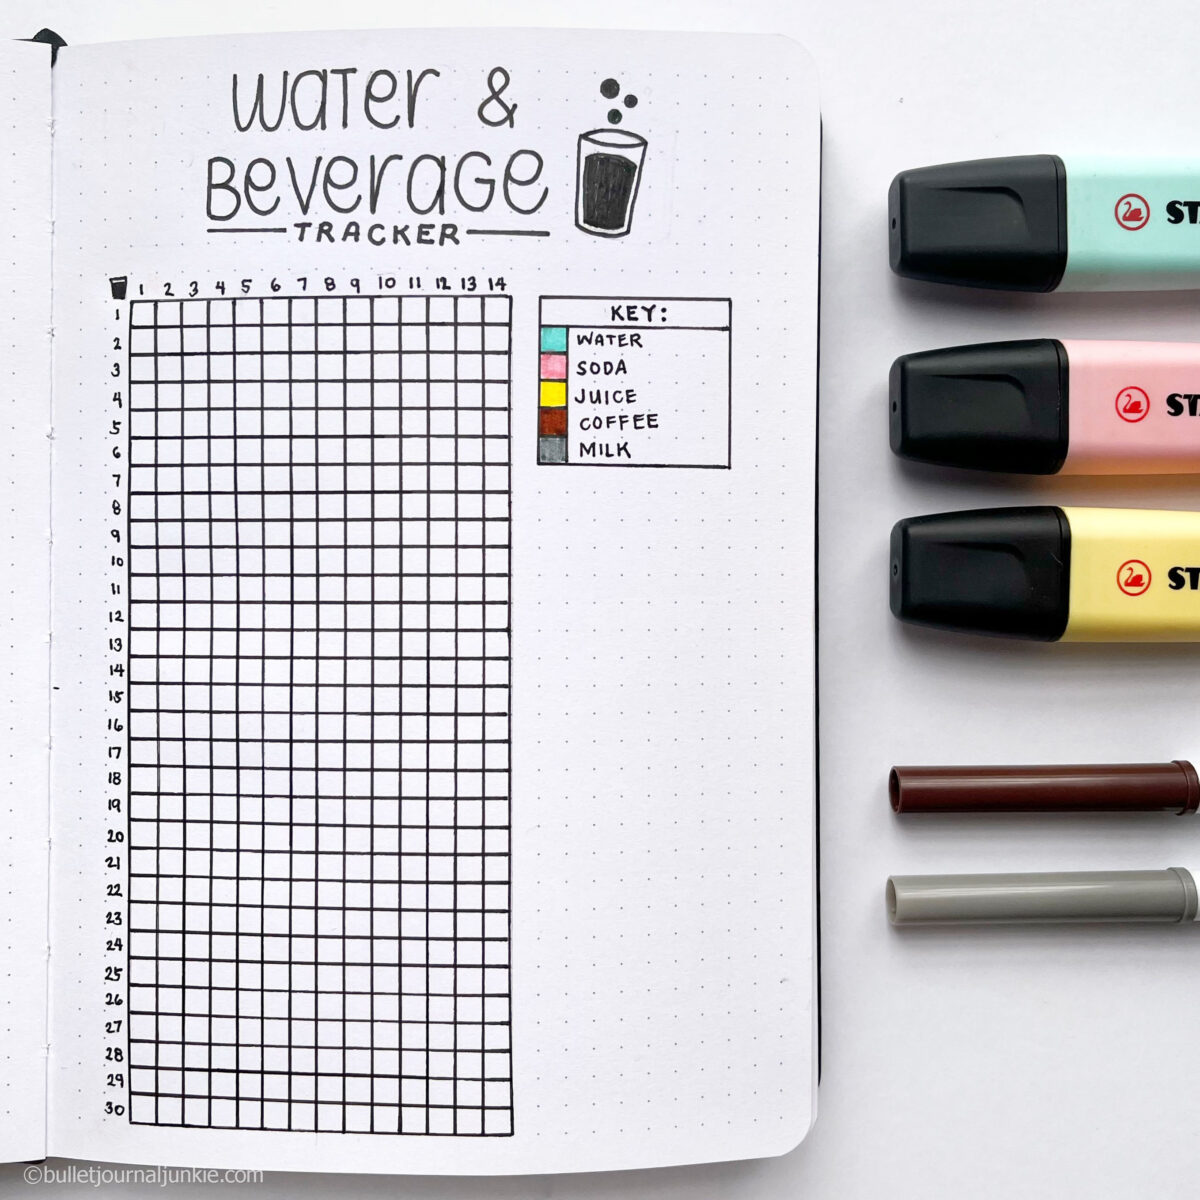 Water &
Beverage
TRACKER
1 2 3 4 5 6 7 8 9 10 11 12 13 14
1
2
3
4
5
6
7
8
9
10
11
12
13
14
15
16
17
18
19
20
21
22
23
24
25
26
27
28
29
30
KEY:
WATER
SODA
JUICE
COFFEE
MILK
ST
STA
ST
©bulletjournaljunkie.com